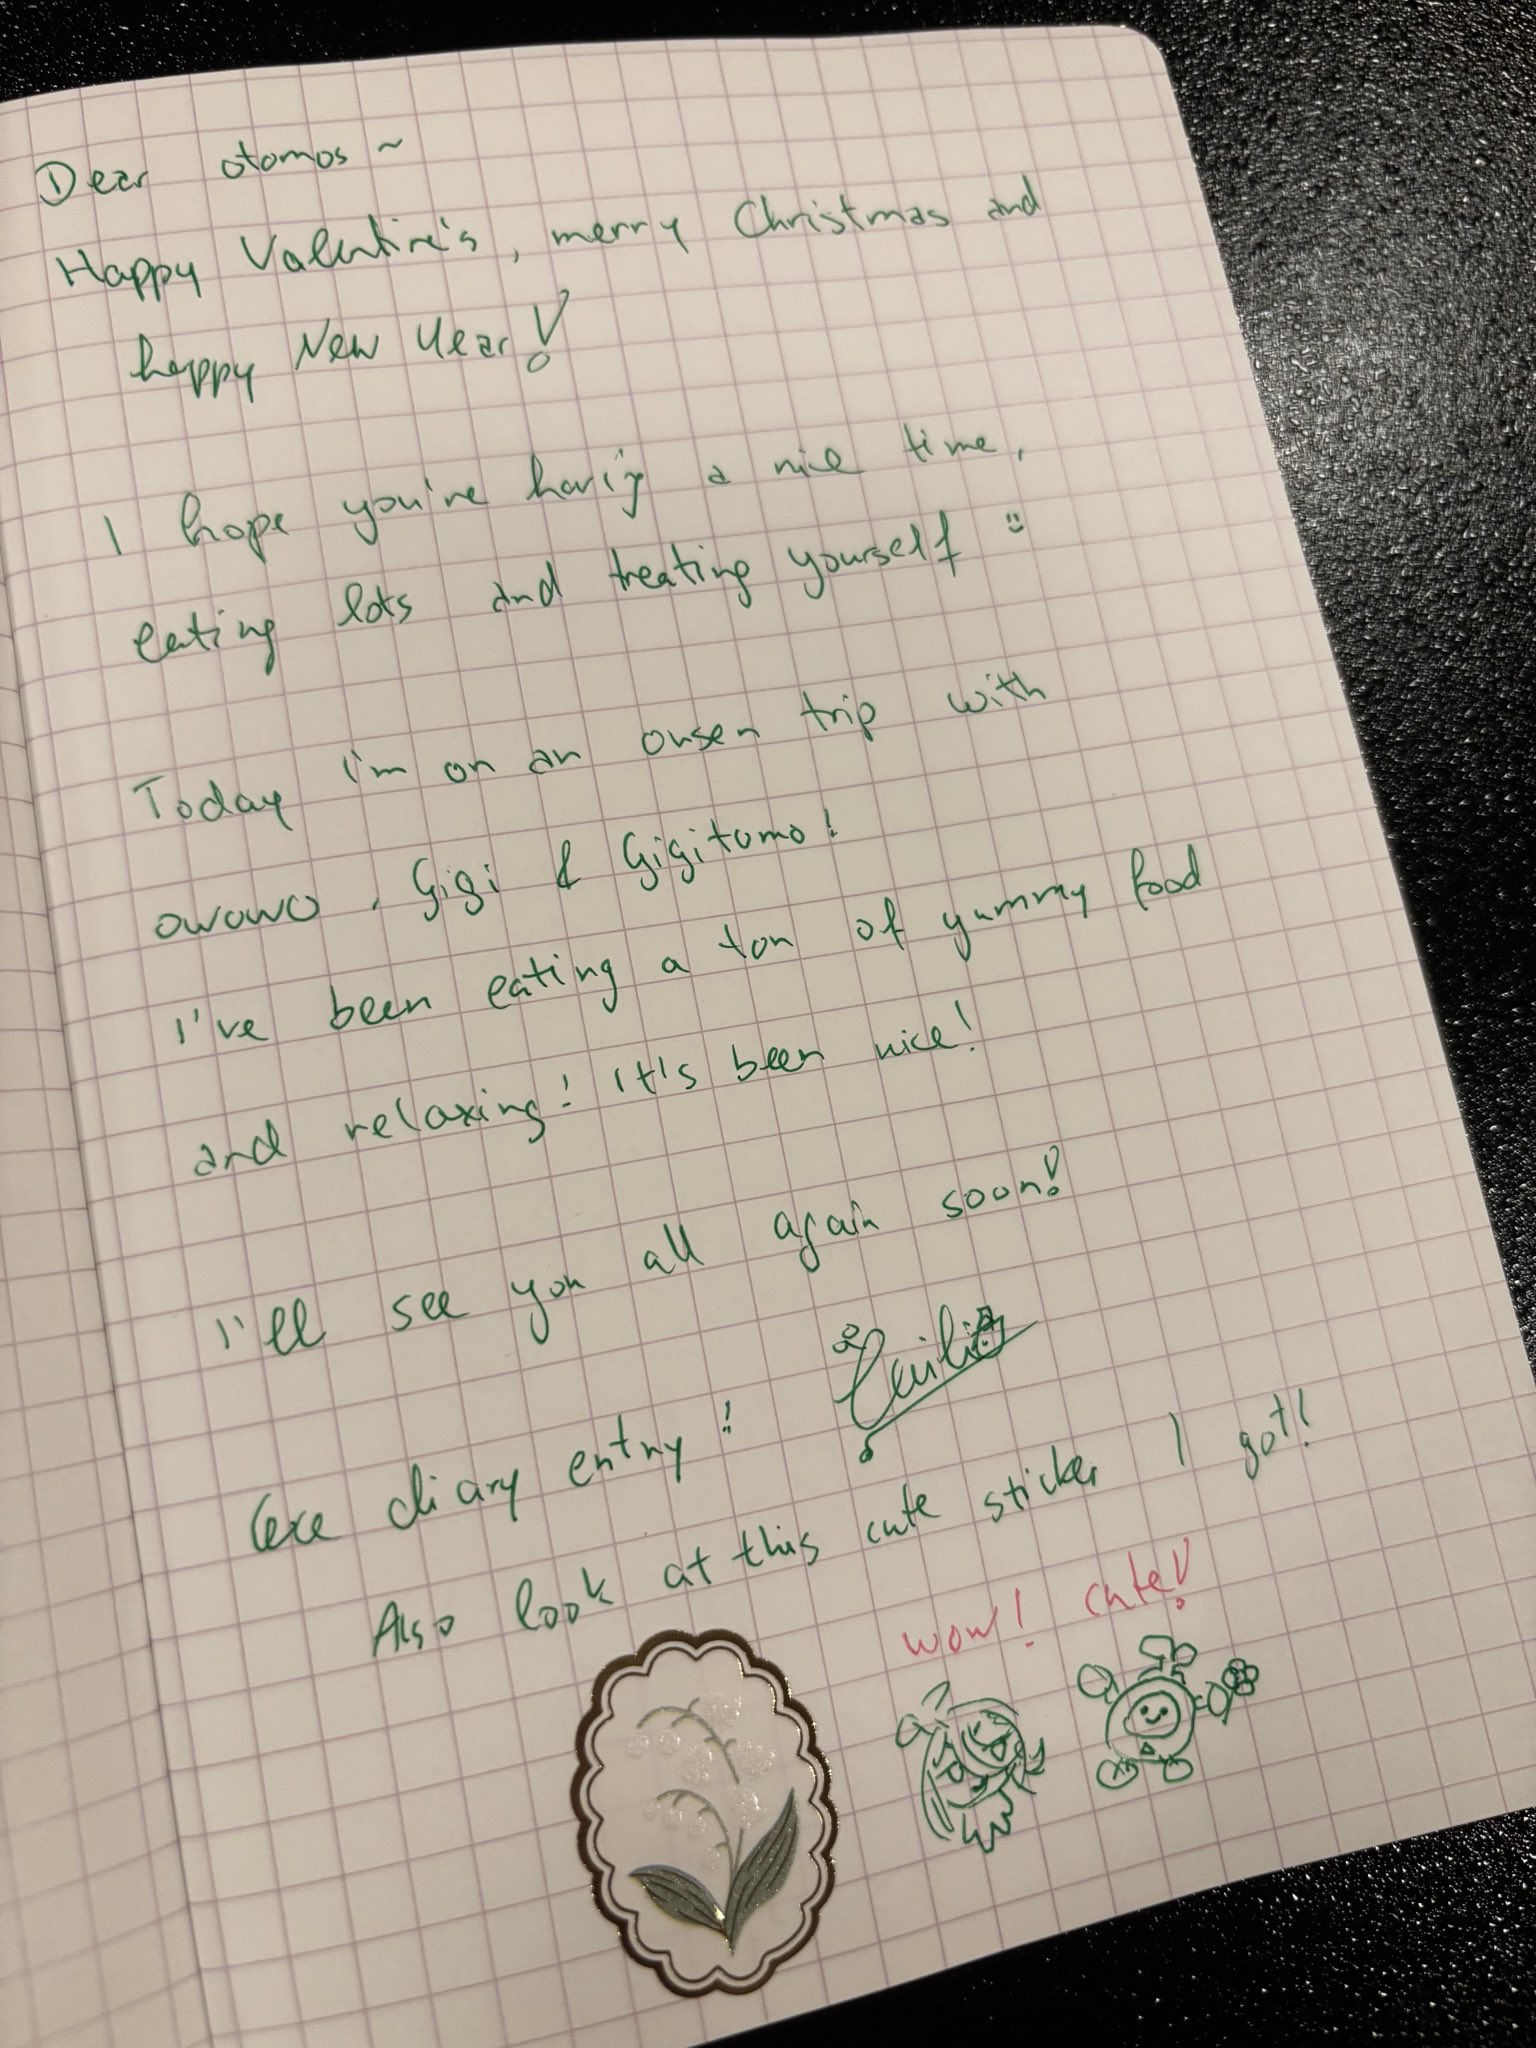 Dear otomos ~
Happy Valentine's, merry Christmas and
happy New Year!
I hope you're having a nice time,
eating lots and treating yourself :)
Today I'm on an onsen trip with
owowo, Gigi & Gigitomo!
I've been eating a ton of yummy food
and relaxing! It's been nice!
I'll see you all again soon!
Cecilia
Cece diary entry!
Also look at this cute sticker I got!
Wow! Cute!